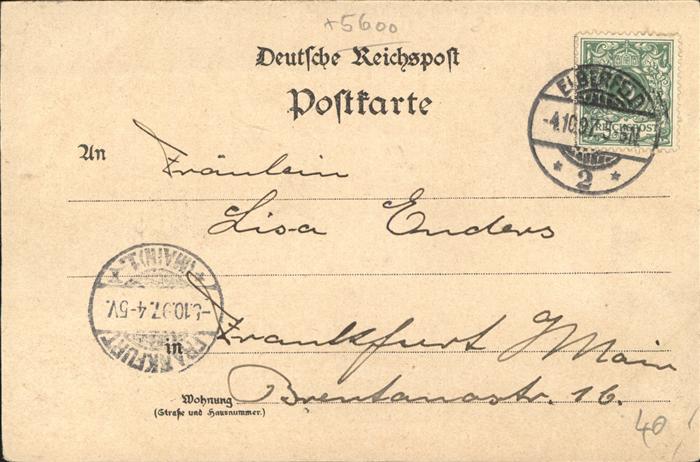 +5600
Deutsche Reichspost
Postkarte
ELBERFELD
-4.10.97.
* 2 *
REICHSPOST
An Fräulein
Lisa Enders
(MAIN) 1.
10.97. 4-5V.
FRANKFURT
in Frankfurt Main
Wohnung Brentanostr. 16.
(Straße und Hausnummer.)
40